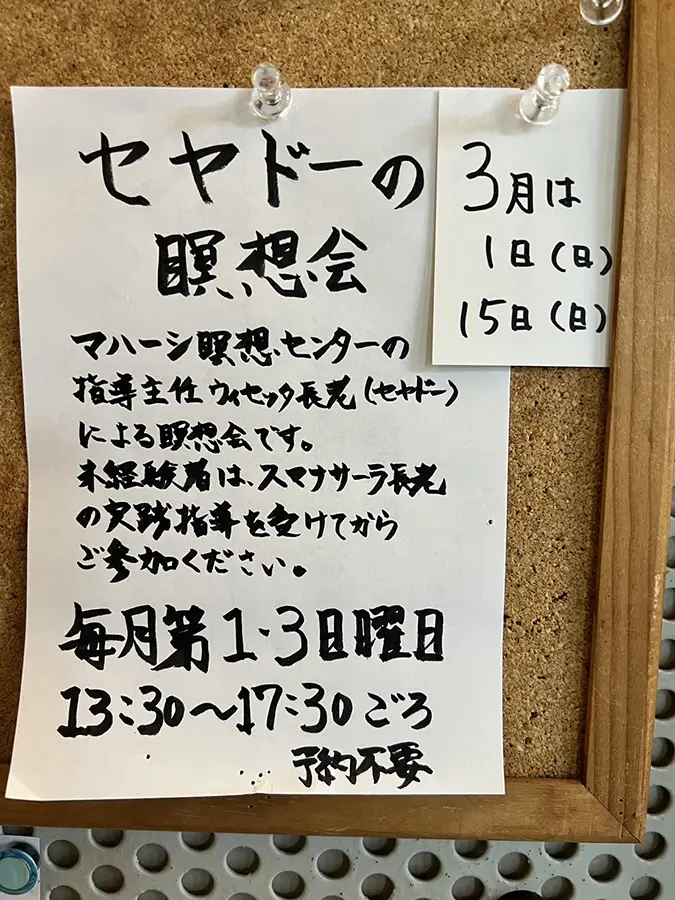 セヤドーの
瞑想会
マハーシ瞑想センターの
指導主任ウィセッタ長老(セヤドー)
による瞑想会です。
未経験者は、スマナサーラ長老
の実践指導を受けてから
ご参加ください。
毎月第1・3日曜日
13:30〜17:30ごろ
予約不要
3月は
1日(日)
15日(日)